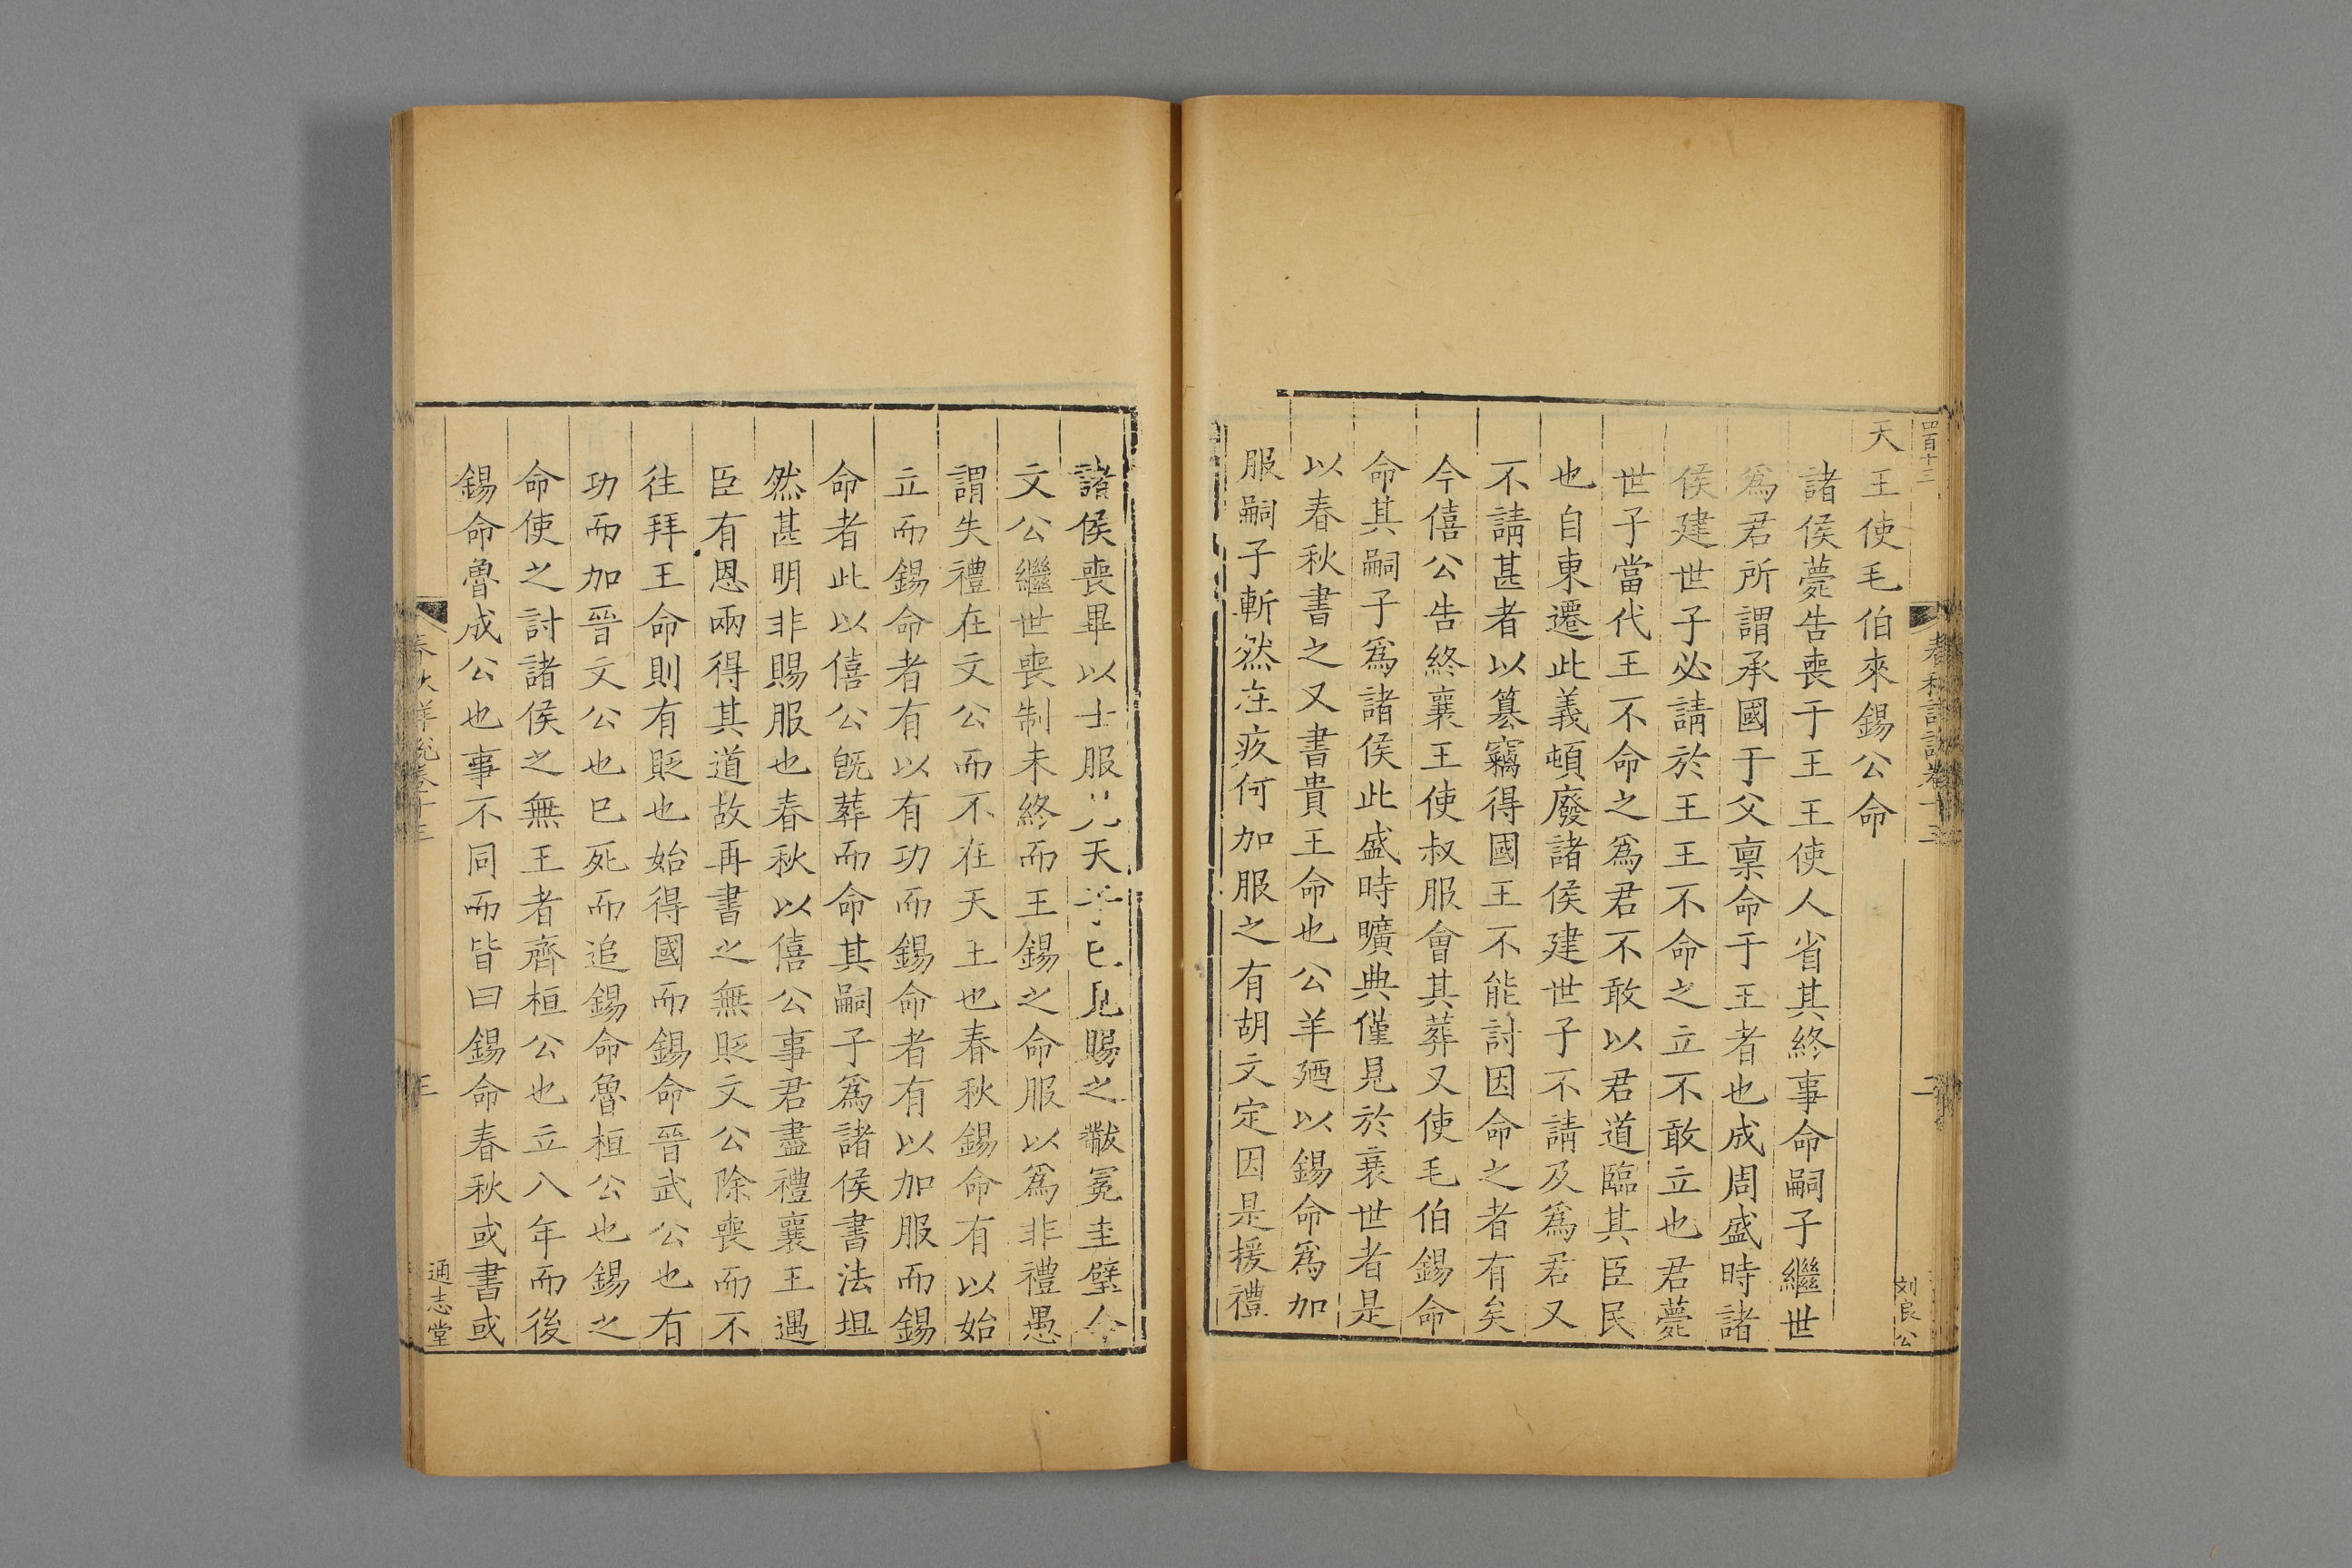 四百十三
春秋詳說卷十三
二
刘良公
天王使毛伯來錫公命
諸侯薨告喪于王王使人省其終事命嗣子繼世
爲君所謂承國于父稟命于王者也成周盛時諸
侯建世子必請於王王不命之立不敢立也君薨
世子當代王不命之爲君不敢以君道臨其臣民
也自東遷此義頓廢諸侯建世子不請及爲君又
不請甚者以簒竊得國王不能討因命之者有矣
今僖公告終襄王使叔服會其葬又使毛伯錫命
命其嗣子爲諸侯此盛時曠典僅見於衰世者是
以春秋書之又書貴王命也公羊廼以錫命爲加
服嗣子斬然在疚何加服之有胡文定因是援禮
諸侯喪畢以士服見天子已見賜之黻冕圭璧今
文公繼世喪制未終而王錫之命服以爲非禮愚
謂失禮在文公而不在天王也春秋錫命有以始
立而錫命者有以有功而錫命者有以加服而錫
命者此以僖公旣葬而命其嗣子爲諸侯書法坦
然甚明非賜服也春秋以僖公事君盡禮襄王遇
臣有恩兩得其道故再書之無貶文公除喪而不
往拜王命則有貶也始得國而錫命晉武公也有
功而加晉文公也巳死而追錫命魯桓公也錫之
命使之討諸侯之無王者齊桓公也立八年而後
錫命魯成公也事不同而皆曰錫命春秋或書或
春秋詳說卷十三
三
通志堂